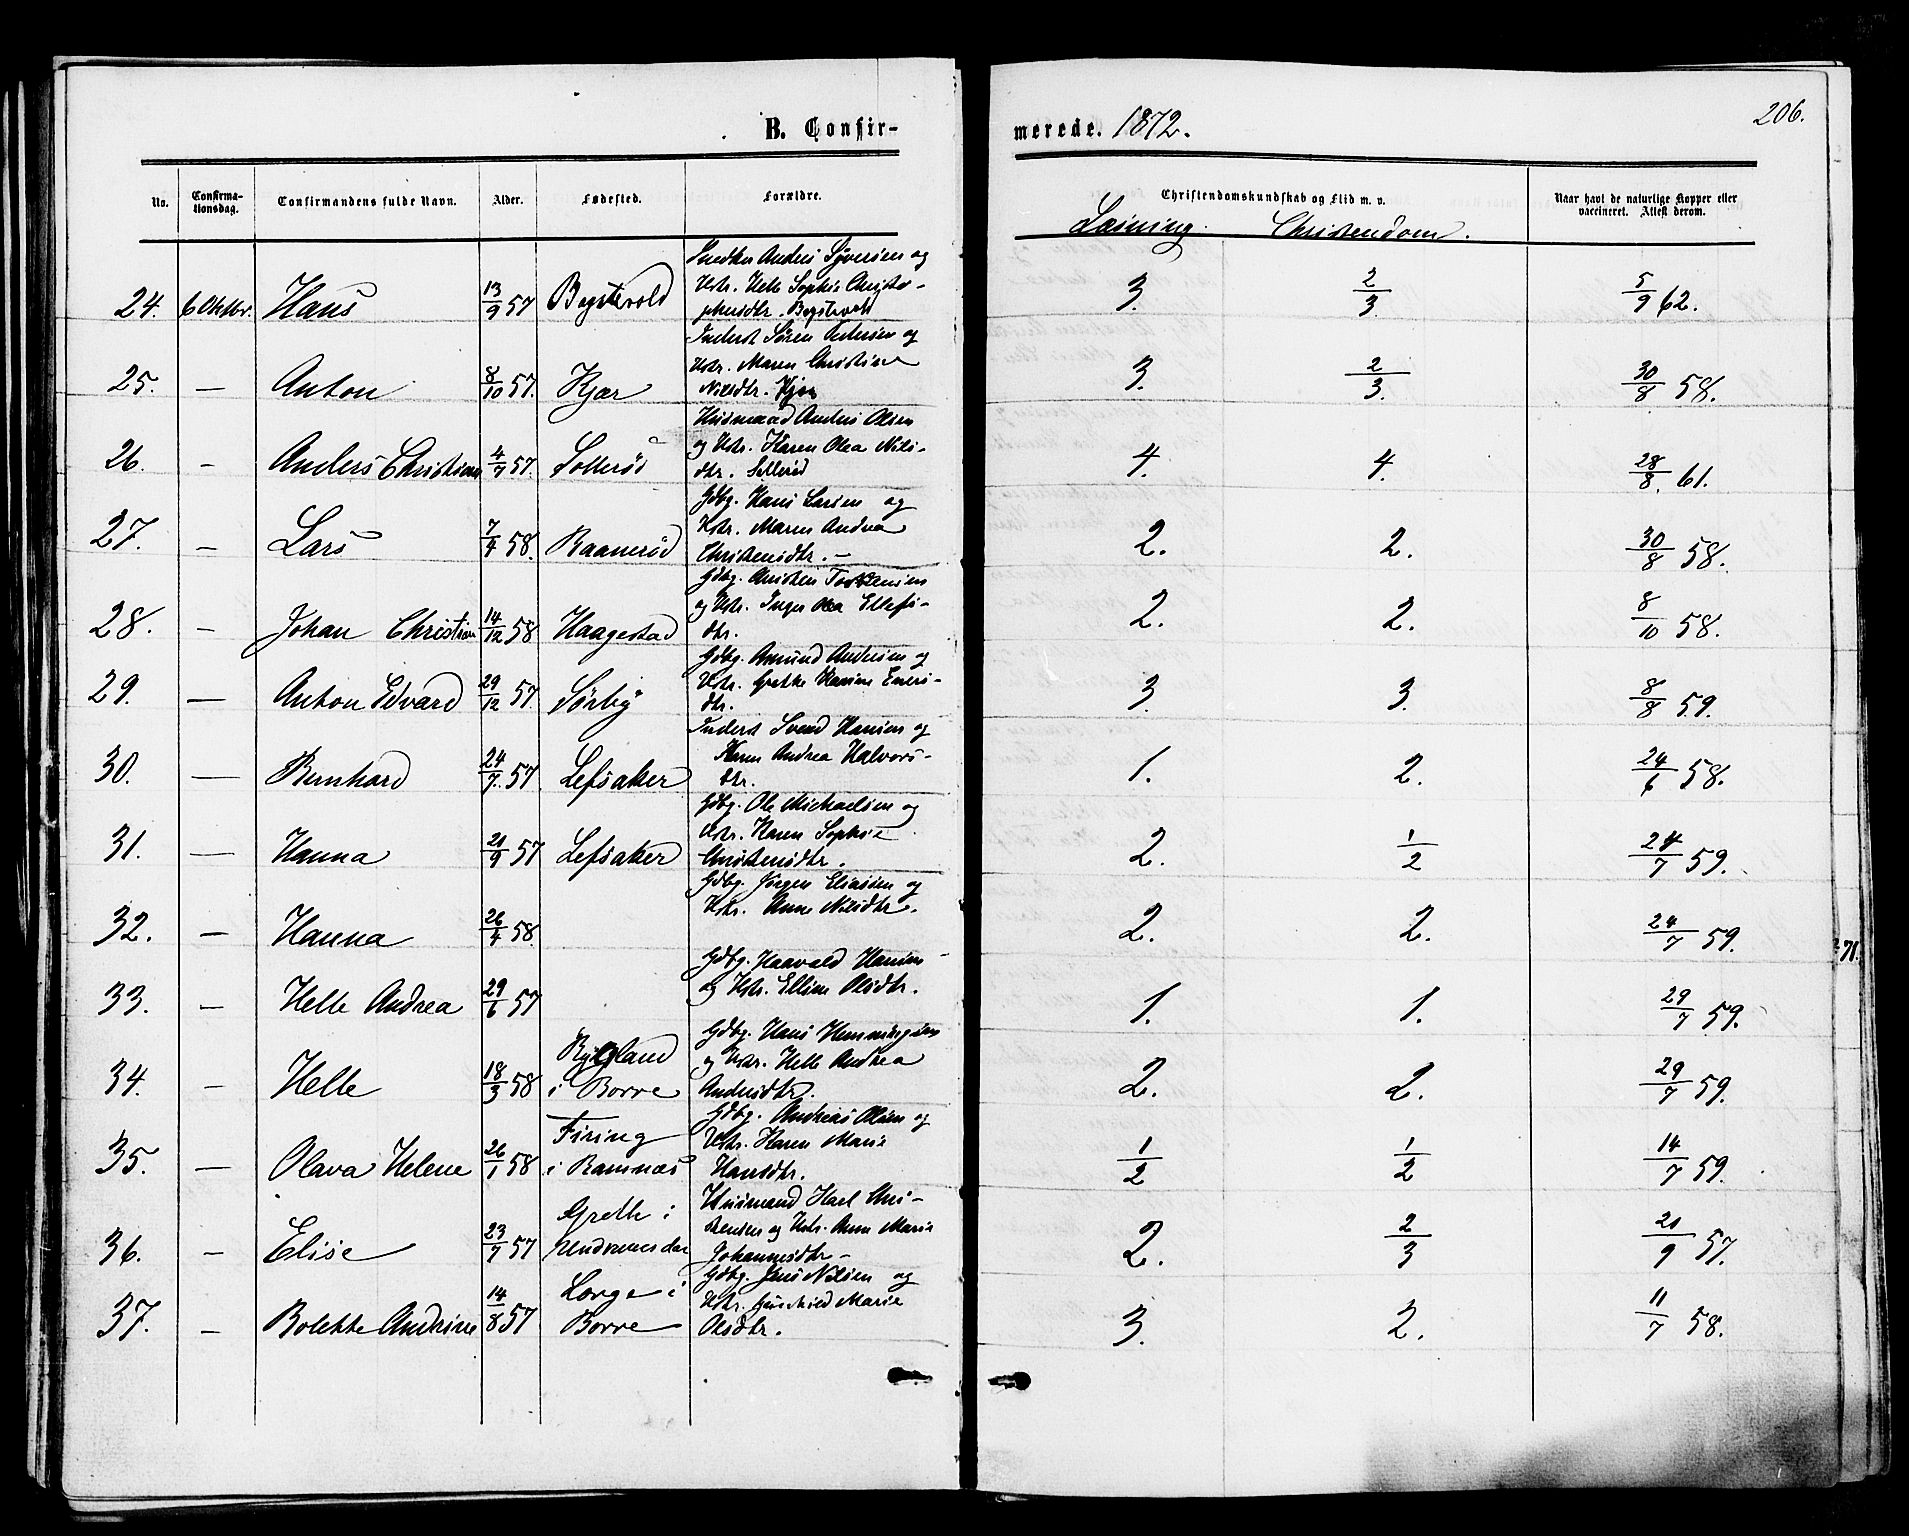 B. Confir-
merede. 1872.
206.
No.
Confirma-
tionsdag.
Confirmandens fulde Navn.
Alder.
Fødested.
Forældre.
Christendomskundskab og Flid m. v.
Naar havt de naturlige Kopper eller
vaccineret. Attest derom.
Læsning. Christendom.
Snedker Anders Syversen og
Hstr. Helle Sophie Christo-
phersdtr. Bogstvold
24. 6 Oktbr. Hans 13/9 57 Bogstvold 3. 2/3. 5/9 62.
Inderst Søren Pedersen og
Hstr. Maren Christine
Nilsdtr. Kjær
25. — Anton 8/10 57. Kjær 3. 2/3. 30/8 58.
Husmand Anders Olsen
og Hstr. Karen Olea Nils-
dtr. Sollerød
26. — Anders Christian 4/7 57. Sollerød 4. 4. 28/8. 61.
Gdbg. Hans Larsen og
Hstr. Maren Andrea
Christensdtr. —
27. — Lars 7/4 58. Baanerød 2. 2. 30/8 58.
Gdbg. Christen Torstensen
og Hstr. Inger Olea Ellefs-
dtr.
28. — Johan Christian 14/12 58 Haagestad 2. 2. 8/10 58.
Gdbg. Amund Andersen og
Hstr. Grethe Hansine Eners-
dtr.
29. — Anton Edvard 29/12 57. Sørby 3. 3. 8/8 59.
Inderst Svend Hansen og
Karen Andrea Halvors-
dtr.
30. — Bernhard 24/7. 57 Lefsaker 1. 2. 24/6 58.
Gdbg. Ole Michaelsen og
Hstr. Karen Sophie
Christensdtr.
31. — Hanna 21/9 57 Lefsaker 2. 1/2 24/7 59.
Gdbg. Jørgen Eliassen og
Hstr. Anne Nilsdtr.
32. — Hanna 26/4 58. 2. 2. 24/7 59.
Gdbg. Haavald Hansen
og Hstr. Elline Olsdtr.
33. — Helle Andrea 29/6 57 1. 1. 29/7 59.
Gdbg. Hans Hemmingsen
og Hstr. Helle Andrea
Andersdtr.
34. — Helle 18/3 58 Rygland
i Borre 2. 2. 29/7 59.
Gdbg. Andreas Olsen og
Hstr. Karen Marie
Hansdtr.
35. — Olava Helene 26/1 58 Firing
i Ramnæs 1/2 1/2 14/7 59.
Husmand Karl Chri-
stensen og Hstr. Anne Marie
Johannesdtr —
36. — Elise 23/7 57 Greth i
2. 2/3 21/9 57.
Gdbg. Jens Nilsen og
Hstr. Marie
Olsdtr.
37. — Bolette Andrine 14/8 57 Lorge i
Borre 3. 2. 11/7 58.
71.